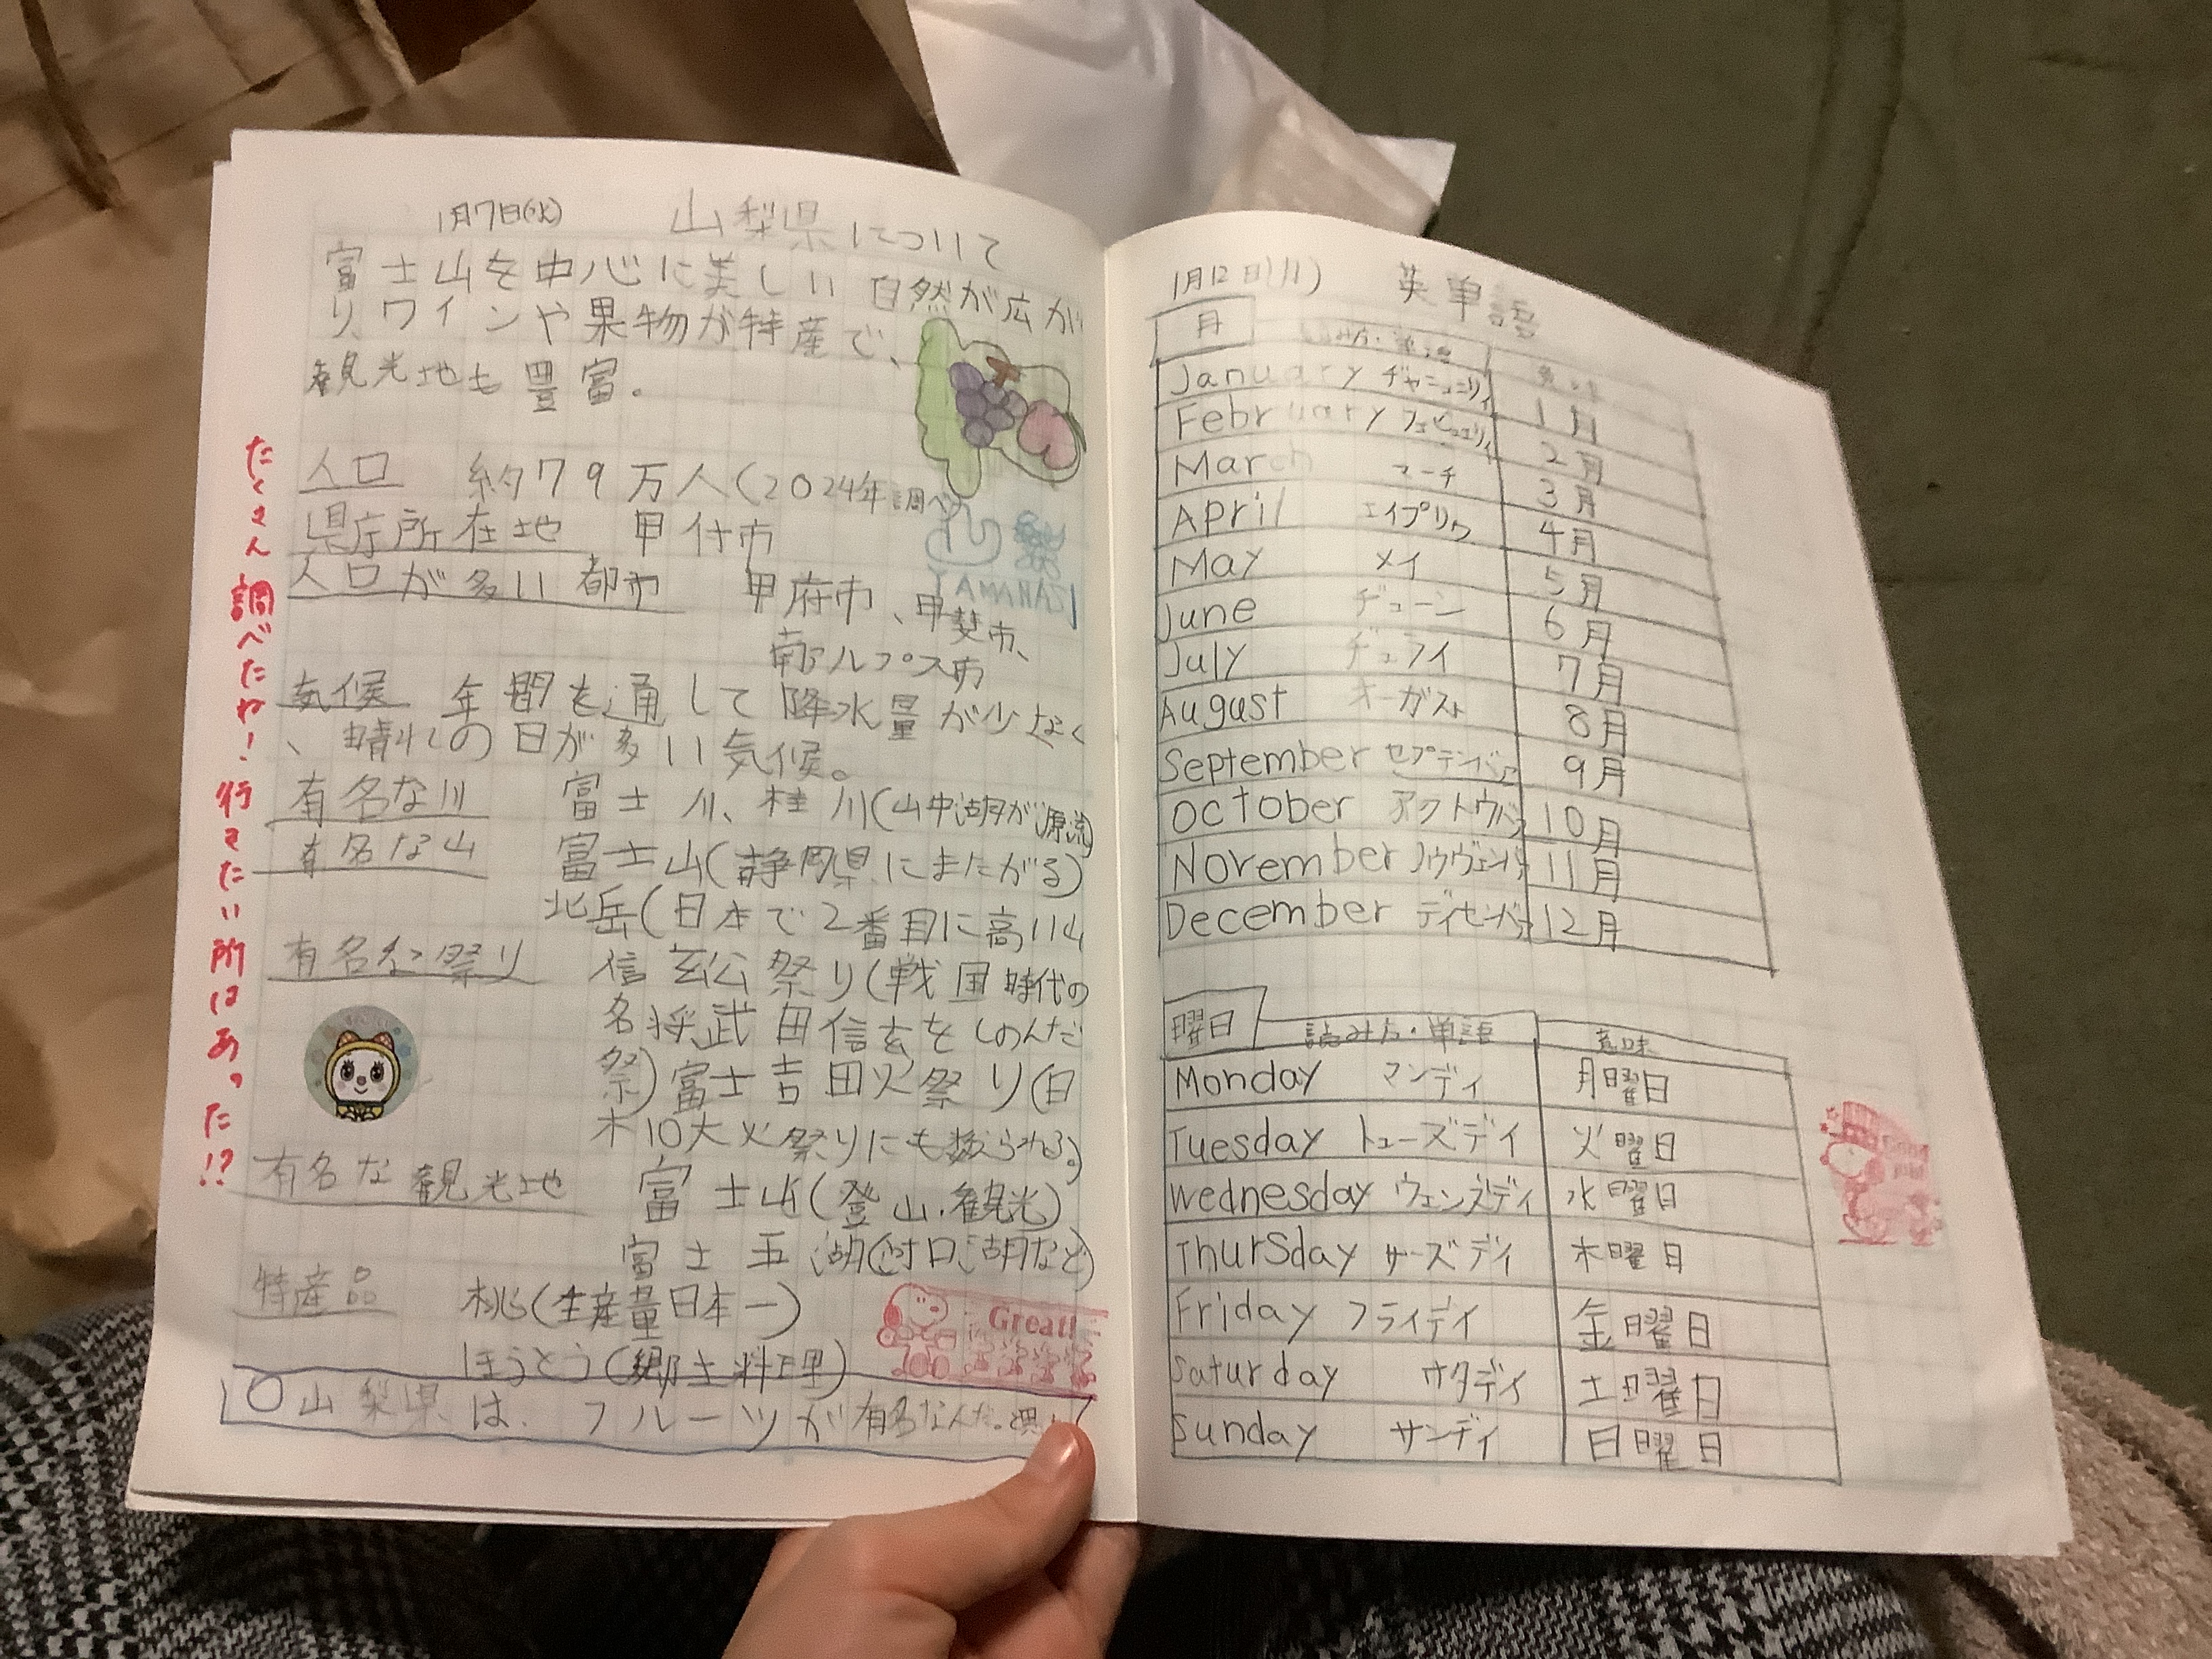 1月7日(水) 山梨県について
富士山を中心に美しい自然が広が
り、ワインや果物が特産で、
観光地も豊富。
人口 約79万人(2024年調べ)
県庁所在地 甲付市
人口が多い都市 甲府市、甲斐市、
南アルプス市
YAMANASI
気候 年間を通して降水量が少なく
、晴れの日が多い気候。
有名な川 富士川、桂川(山中湖が源流)
有名な山 富士山(静岡県にまたがる)
北岳(日本で2番目に高い山
有名な祭り 信玄公祭り(戦国時代の
名将武田信玄をしのんだ
祭)富士吉田火祭り(日
本10大火祭りにも数られる。)
有名な観光地 富士山(登山・観光)
富士五湖(河口湖など)
特産品 桃(生産量日本一)
ほうとう(郷土料理)
Great!
○山梨県は、フルーツが有名なんだ。
たくさん調べたね!行きたい所はあった!?
1月12日(月) 英単語
月 読み方・単語 意味
January ヂャニュエリィ 1月
February フェビュエリィ 2月
March マーチ 3月
April エイプリウ 4月
May メイ 5月
June ヂューン 6月
July ヂュライ 7月
August オーガスト 8月
September セプテンバァ 9月
October アクトウバァ 10月
November ノウヴェンバァ 11月
December ディセンバァ 12月
曜日 読み方・単語 意味
Monday マンディ 月曜日
Tuesday トューズディ 火曜日
Wednesday ウェンズディ 水曜日
Thursday サーズディ 木曜日
Friday フライディ 金曜日
Saturday サタディ 土曜日
Sunday サンディ 日曜日